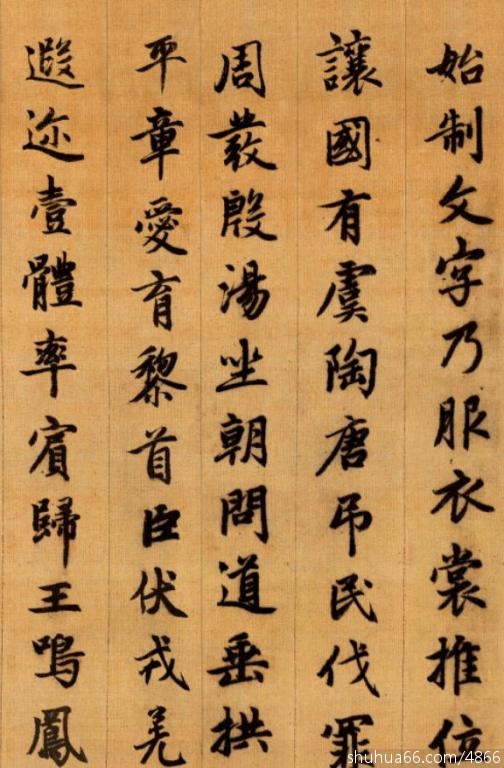 始制文字乃服衣裳推位
讓國有虞陶唐吊民伐罪
周發殷湯坐朝問道垂拱
平章愛育黎首臣伏戎羌
遐迩壹體率賓歸王鳴鳳
shuhua66.com/4866